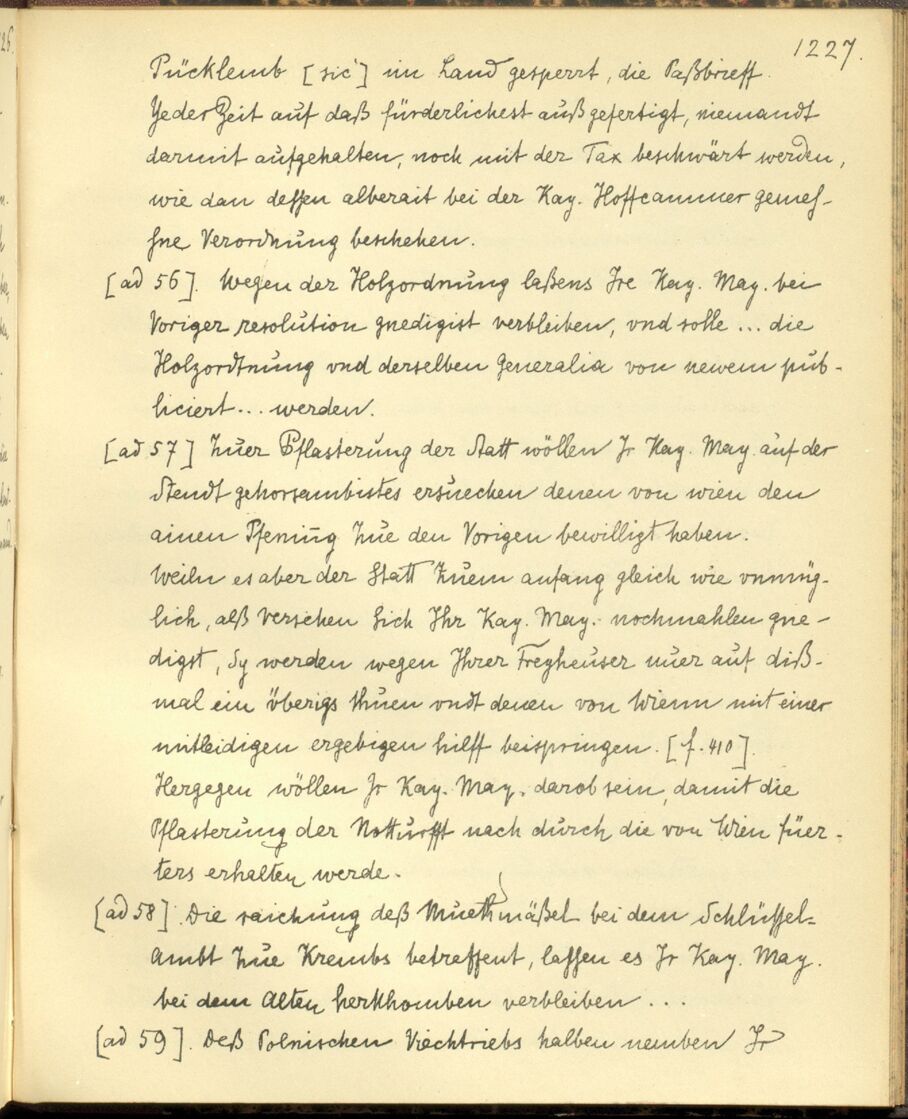 1227.
Pücklemb [sic'] im Land gesperrt, die Paßbrieff
Yeder Zeit auf daß fürderlichest außgefertigt, niemandt
darmit aufgehalten, noch mit der Tax beschwärt werden,
wie dan dessen alberait bei der Kay. Hoffcammer gemes-
sne Verordnung beschehen.
[ad 56]. Wegen der Holzordnung laßens Jre Kay. May. bei
Voriger resolution gnedigist verbleiben, vnd solle ... die
Holzordtnung vnd derselben Generalia von newem pub-
liciert ... werden.
[ad 57] Zuer Pflasterung der Statt wöllen Jr Kay. May. auf der
Stendt gehorsambistes ersuechen denen von wien den
ainen Pfening Zue den Vorigen bewilligt haben.
Weiln es aber der Statt Zuem anfang gleich wie vnmüg-
lich, alß Versehen Sich Ihr Kay. May. nochmahlen gne-
digst, Sy werden wegen Ihrer Freyheuser nuer auf diß-
mal ein überigs thuen vndt denen von Wienn mit einer
mitleidigen ergebigen hilff beispringen. [f. 410].
Hergegen wöllen Jr Kay. May. darob sein, damit die
Pflasterung der Notturfft nach durch die von Wien füer-
ters erhalten werde.
[ad 58]. Die raichung deß Muethmäßel bei dem Schlüssel=
Ambt Zue Krembs betreffent, lassen es Jr Kay. May.
bei dem Alten herkhomben verbleiben ...
[ad 59]. Deß Polnischen Viechtriebs halben nemben Jr